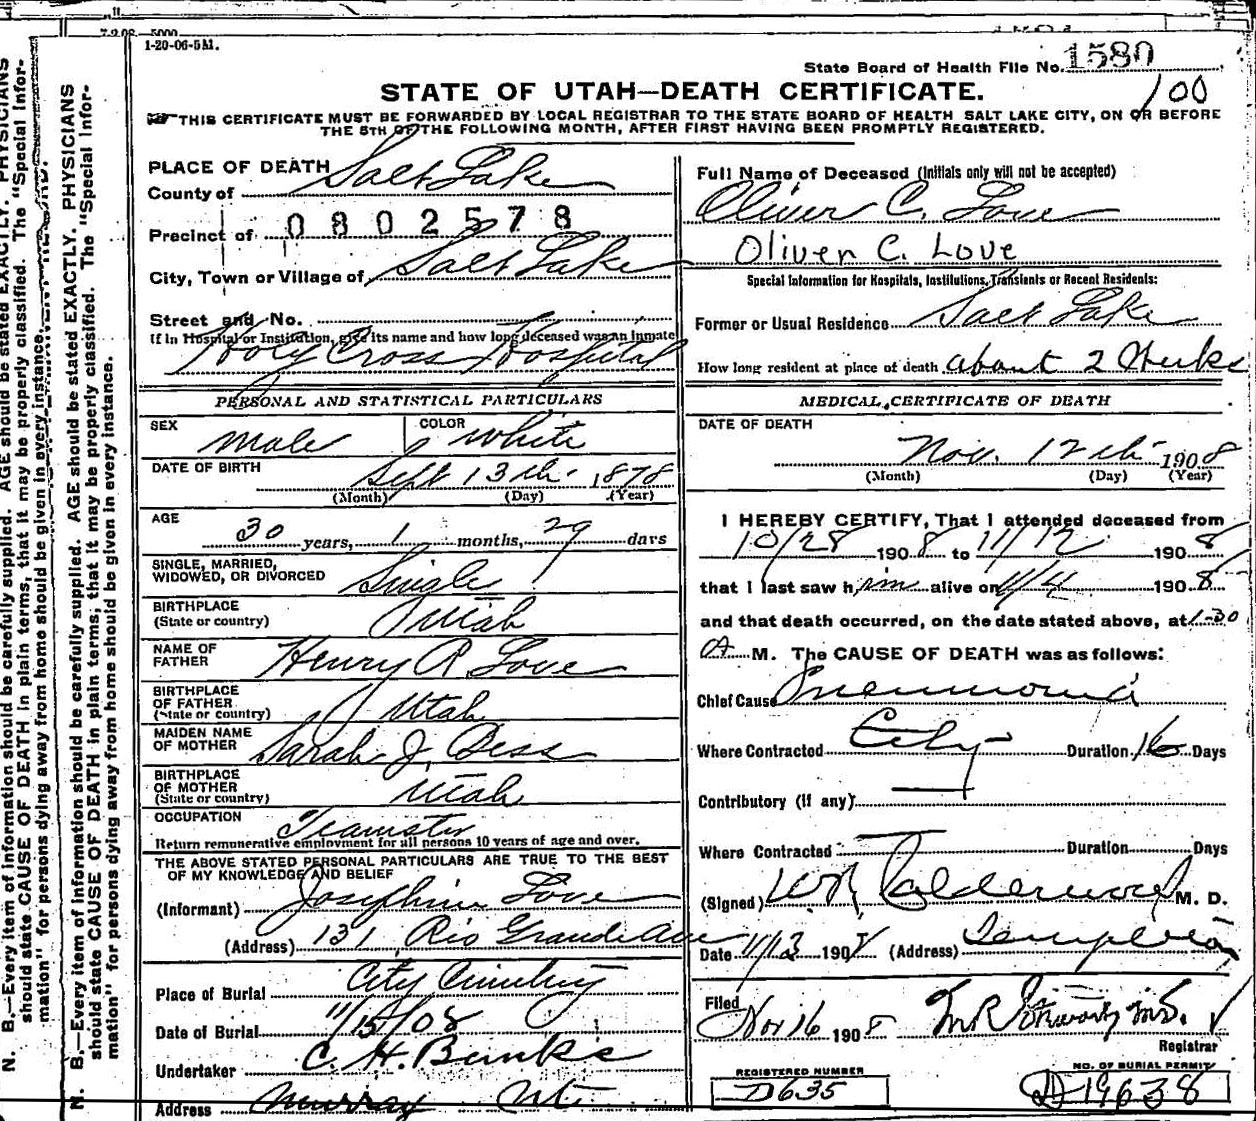 7-2 08 5000
1-20-06-5M.
State Board of Health File No. 1580
STATE OF UTAH—DEATH CERTIFICATE.
100
THIS CERTIFICATE MUST BE FORWARDED BY LOCAL REGISTRAR TO THE STATE BOARD OF HEALTH SALT LAKE CITY, ON OR BEFORE
THE 5TH OF THE FOLLOWING MONTH, AFTER FIRST HAVING BEEN PROMPTLY REGISTERED.
PLACE OF DEATH
County of Salt Lake
Precinct of 0802578
City, Town or Village of Salt Lake
Street and No.
If in Hospital or Institution, give its name and how long deceased was an inmate
Holy Cross Hospital
Full Name of Deceased (Initials only will not be accepted)
Oliver C. Love
Oliver C. Love
Special Information for Hospitals, Institutions, Transients or Recent Residents:
Former or Usual Residence Salt Lake
How long resident at place of death about 2 Weeks
PERSONAL AND STATISTICAL PARTICULARS
SEX male COLOR white
DATE OF BIRTH Sept 13th 1878
(Month) (Day) (Year)
AGE
30 years, 1 months, 29 days
SINGLE, MARRIED,
WIDOWED, OR DIVORCED Single
BIRTHPLACE
(State or country) Utah
NAME OF
FATHER Henry A Love
BIRTHPLACE
OF FATHER
(State or country) Utah
MAIDEN NAME
OF MOTHER Sarah J. Bess
BIRTHPLACE
OF MOTHER
(State or country) Utah
OCCUPATION Teamster
Return remunerative employment for all persons 10 years of age and over.
THE ABOVE STATED PERSONAL PARTICULARS ARE TRUE TO THE BEST
OF MY KNOWLEDGE AND BELIEF
(Informant) Josephine Love
(Address) 131 Rio Grande Ave
Place of Burial City Cemetery
Date of Burial 11/15/08
Undertaker C. H. Banks
Address Murray Ut.
MEDICAL CERTIFICATE OF DEATH
DATE OF DEATH
Nov. 12th 1908
(Month) (Day) (Year)
I HEREBY CERTIFY, That I attended deceased from
10/28 1908 to 11/12 1908
that I last saw him alive on 11/ 1908
and that death occurred, on the date stated above, at 1-30
A M. The CAUSE OF DEATH was as follows:
Chief Cause Pneumonia
Where Contracted City Duration 16 Days
Contributory (if any)
Where Contracted Duration Days
(Signed) Calderwood M. D.
Date 11/13 1908 (Address) Templeton
Filed
Nov 16 1908 M.D.
Registrar
REGISTERED NUMBER
D635
NO. OF BURIAL PERMIT
D 19638
N. B.—Every item of information should be carefully supplied. AGE should be stated EXACTLY. PHYSICIANS
should state CAUSE OF DEATH in plain terms, that it may be properly classified. The "Special Infor-
mation" for persons dying away from home should be given in every instance.
N. B.—Every item of information should be carefully supplied. AGE should be stated EXACTLY. PHYSICIANS
should state CAUSE OF DEATH in plain terms, that it may be properly classified. The "Special Infor-
mation" for persons dying away from home should be given in every instance.